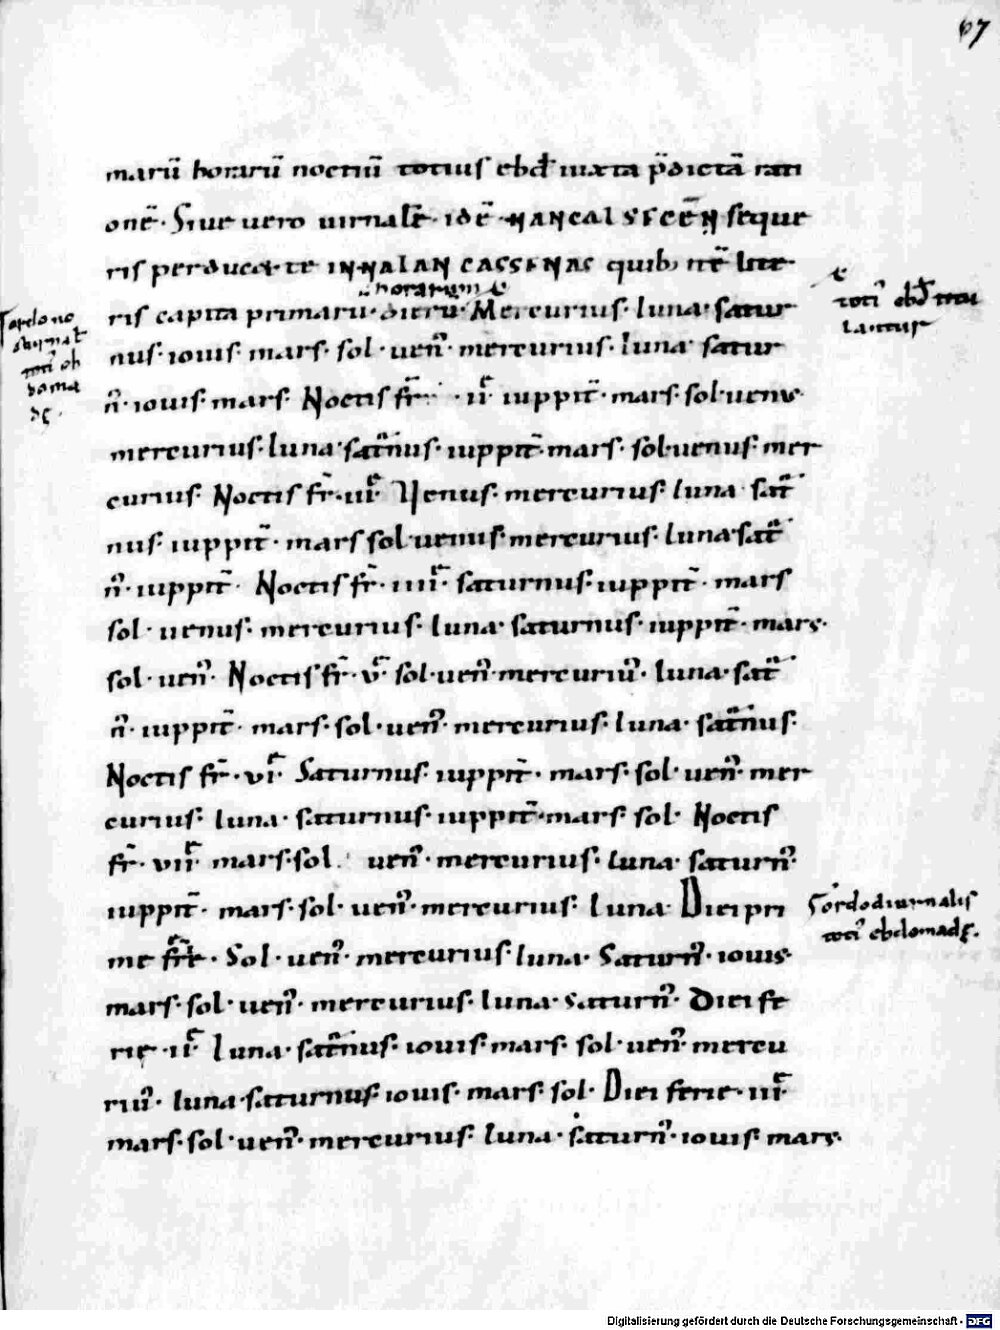 67
marū horarū noctiū totius ebđ iuxta p̄dictā rati
onē · Siue uero uirnalē · idē · NANCALSFCĒN seque
ris perducet te INNALAN CASSENAS quib; nē litte
horarum
ris capita primarū · dierū · Mercurius · luna · satur
nus · iouis · mars · sol · ueñ · mercurius · luna · satur
ñ · iouis · mars · Noctis fr̄ · ii · iuppit̄ · mars · sol · uenus
mercurius · luna · sat̄nus · iuppit̄ · mars · sol · uenus · mer
curius · Noctis fr̄ · iii · Venus · mercurius · luna · sat̄
nus · iuppit̄ · mars sol · uenus · mercurius · luna · sat̄
ñ · iuppit̄ · Noctis fr̄ · iiii · saturnus · iuppit̄ · mars
sol · uenus · mercurius · luna · saturnus · iuppit̄ · mars ·
sol · ueñ · Noctis fr̄ · v · sol · ueñ · mercuriū · luna · sat̄
ñ · iuppit̄ · mars · sol · ueñ · mercurius · luna · sat̄nus ·
Noctis fr̄ · vi · Saturnus · iuppit̄ · mars · sol · ueñ · mer
curius · luna · saturnus · iuppit̄ · mars · sol · Noctis
fr̄ · vii · mars · sol · ueñ · mercurius · luna · saturñ ·
iuppit̄ · mars · sol · ueñ · mercurius · luna · Diei pri
me · Sol · ueñ · mercurius · luna · Saturñ · iouis ·
mars · sol · ueñ · mercurius · luna · saturñ · Diei fe
rię · ii · luna · sat̄nus · iouis · mars · sol · ueñ · mercu
riū · luna · saturnus · iouis · mars · sol · Diei ferie · iii ·
mars · sol · ueñ · mercurius · luna · saturñ · iouis · mars ·
ordo no
toti ebđ
ordo diurnalis
toti ebdomadę ·
Digitalisierung gefördert durch die Deutsche Forschungsgemeinschaft - DFG